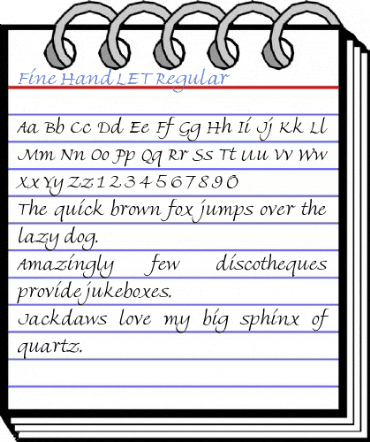 Fine Hand LET Regular
Aa Bb Cc Dd Ee Ff Gg Hh Ii Jj Kk Ll
Mm Nn Oo Pp Qq Rr Ss Tt Uu Vv Ww
Xx Yy Zz 1 2 3 4 5 6 7 8 9 0
The quick brown fox jumps over the
lazy dog.
Amazingly few discotheques
provide jukeboxes.
Jackdaws love my big sphinx of
quartz.